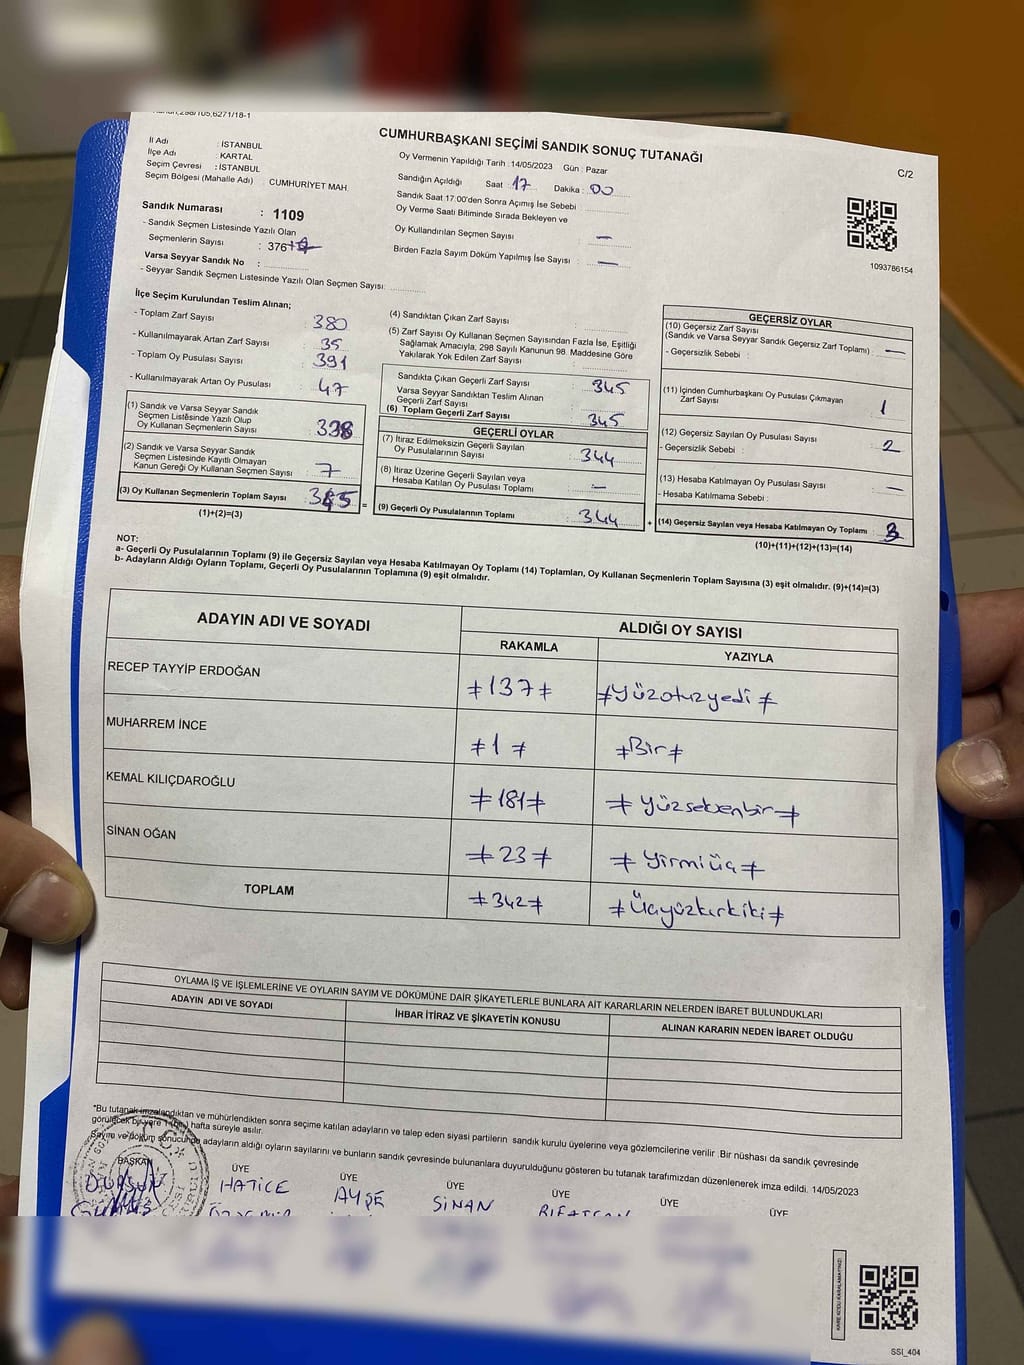 CUMHURBAŞKANI SEÇİMİ SANDIK SONUÇ TUTANAĞI
C/2
İl Adı : İSTANBUL
İlçe Adı : KARTAL
Seçim Çevresi : İSTANBUL
Seçim Bölgesi (Mahalle Adı) : CUMHURİYET MAH.
Sandık Numarası : 1109
- Sandık Seçmen Listesinde Yazılı Olan
Seçmenlerin Sayısı : 376
Varsa Seyyar Sandık No :
- Seyyar Sandık Seçmen Listesinde Yazılı Olan Seçmen Sayısı:
Oy Vermenin Yapıldığı Tarih : 14/05/2023 Gün : Pazar
Sandığın Açıldığı Saat 17 Dakika : 00
Sandık Saat 17:00'den Sonra Açılmış İse Sebebi
Oy Verme Saati Bitiminde Sırada Bekleyen ve
Oy Kullandırılan Seçmen Sayısı : —
Birden Fazla Sayım Döküm Yapılmış İse Sayısı : —
1093786154
İlçe Seçim Kurulundan Teslim Alınan;
- Toplam Zarf Sayısı : 380
- Kullanılmayarak Artan Zarf Sayısı : 35
- Toplam Oy Pusulası Sayısı : 391
- Kullanılmayarak Artan Oy Pusulası : 47
(1) Sandık ve Varsa Seyyar Sandık
Seçmen Listesinde Yazılı Olup
Oy Kullanan Seçmenlerin Sayısı : 338
(2) Sandık ve Varsa Seyyar Sandık
Seçmen Listesinde Kayıtlı Olmayan
Kanun Gereği Oy Kullanan Seçmen Sayısı : 7
(3) Oy Kullanan Seçmenlerin Toplam Sayısı : 345
(1)+(2)=(3)
(4) Sandıktan Çıkan Zarf Sayısı :
(5) Zarf Sayısı Oy Kullanan Seçmen Sayısından Fazla İse, Eşitliği
Sağlamak Amacıyla, 298 Sayılı Kanunun 98. Maddesine Göre
Yakılarak Yok Edilen Zarf Sayısı :
Sandıkta Çıkan Geçerli Zarf Sayısı : 345
Varsa Seyyar Sandıktan Teslim Alınan
Geçerli Zarf Sayısı :
(6) Toplam Geçerli Zarf Sayısı : 345
GEÇERLİ OYLAR
(7) İtiraz Edilmeksizin Geçerli Sayılan
Oy Pusulalarının Sayısı : 344
(8) İtiraz Üzerine Geçerli Sayılan veya
Hesaba Katılan Oy Pusulası Toplamı : —
(9) Geçerli Oy Pusulalarının Toplamı : 344
GEÇERSİZ OYLAR
(10) Geçersiz Zarf Sayısı
(Sandık ve Varsa Seyyar Sandık Geçersiz Zarf Toplamı) : —
- Geçersizlik Sebebi :
(11) İçinden Cumhurbaşkanı Oy Pusulası Çıkmayan
Zarf Sayısı : 1
(12) Geçersiz Sayılan Oy Pusulası Sayısı : 2
- Geçersizlik Sebebi :
(13) Hesaba Katılmayan Oy Pusulası Sayısı : —
- Hesaba Katılmama Sebebi :
(14) Geçersiz Sayılan veya Hesaba Katılmayan Oy Toplamı : 3
(10)+(11)+(12)+(13)=(14)
NOT:
a- Geçerli Oy Pusulalarının Toplamı (9) ile Geçersiz Sayılan veya Hesaba Katılmayan Oy Toplamı (14) Toplamları, Oy Kullanan Seçmenlerin Toplam Sayısına (3) eşit olmalıdır. (9)+(14)=(3)
b- Adayların Aldığı Oyların Toplamı, Geçerli Oy Pusulalarının Toplamına (9) eşit olmalıdır.
ADAYIN ADI VE SOYADI
ALDIĞI OY SAYISI
RAKAMLA YAZIYLA
RECEP TAYYİP ERDOĞAN ≠137≠ ≠Yüzotuzyedi≠
MUHARREM İNCE ≠1≠ ≠Bir≠
KEMAL KILIÇDAROĞLU ≠181≠ ≠Yüzseksenbir≠
SİNAN OĞAN ≠23≠ ≠Yirmiüç≠
TOPLAM ≠342≠ ≠Üçyüzkırkiki≠
OYLAMA İŞ VE İŞLEMLERİNE VE OYLARIN SAYIM VE DÖKÜMÜNE DAİR ŞİKAYETLERLE BUNLARA AİT KARARLARIN NELERDEN İBARET BULUNDUKLARI
ADAYIN ADI VE SOYADI İHBAR İTİRAZ VE ŞİKAYETİN KONUSU ALINAN KARARIN NEDEN İBARET OLDUĞU
*Bu tutanak imzalandıktan ve mühürlendikten sonra seçime katılan adayların ve talep eden siyasi partilerin sandık kurulu üyelerine veya gözlemcilerine verilir .Bir nüshası da sandık çevresinde
görülecek bir yere 1 (bir) hafta süreyle asılır.
Sayım ve döküm sonucunda adayların aldığı oyların sayılarını ve bunların sandık çevresinde bulunanlara duyurulduğunu gösteren bu tutanak tarafımızdan düzenlenerek imza edildi. 14/05/2023
BAŞKAN ÜYE ÜYE ÜYE ÜYE ÜYE ÜYE
DURSUN HATİCE AYŞE SİNAN
SSİ_404